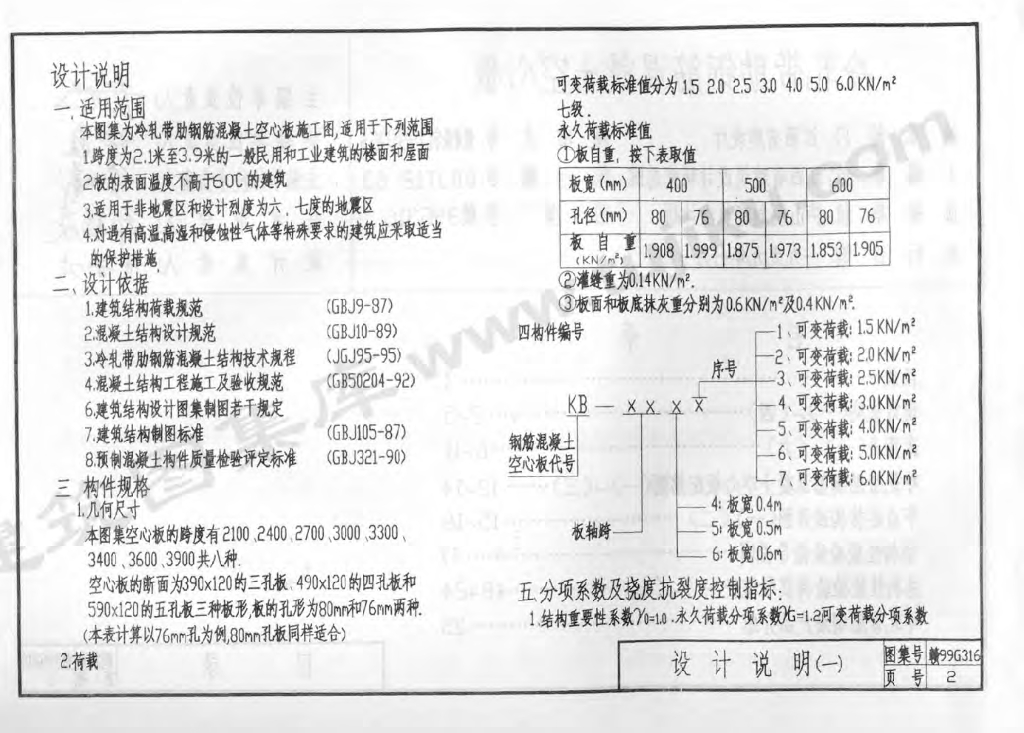 设计说明
一,适用范围
本图集为冷轧带肋钢筋混凝土空心板施工图,适用于下列范围
1.跨度为2.1米至3.9米的一般民用和工业建筑的楼面和屋面
2.板的表面温度不高于60C的建筑
3.适用于非地震区和设计烈度为六、七度的地震区
4.对遇有高温,高湿和侵蚀性气体等特殊要求的建筑应采取适当
的保护措施.
二、设计依据
1.建筑结构荷载规范 (GBJ9-87)
2.混凝土结构设计规范 (GBJ10-89)
3.冷轧带肋钢筋混凝土结构技术规程 (JGJ95-95)
4.混凝土结构工程施工及验收规范 (GB50204-92)
6.建筑结构设计图集制图若干规定
7.建筑结构制图标准 (GBJ105-87)
8.预制混凝土构件质量检验评定标准 (GBJ321-90)
三 构件规格
1.几何尺寸
本图集空心板的跨度有2100、2400、2700、3000、3300、
3400、3600、3900共八种.
空心板的断面为390x120的三孔板、490x120的四孔板和
590x120的五孔板三种板形,板的孔形为80mm和76mm两种.
(本表计算以76mm孔为例,80mm孔板同样适合)
2.荷载
可变荷载标准值分为 1.5 2.0 2.5 3.0 4.0 5.0 6.0 KN/m²
七级.
永久荷载标准值
①板自重, 按下表取值
板宽(mm) 400 500 600
孔径(mm) 80 76 80 76 80 76
板自重(KN/m²) 1.908 1.999 1.875 1.973 1.853 1.905
②灌缝重为0.14KN/m².
③板面和板底抹灰重分别为0.6KN/m²及0.4KN/m².
四构件编号
1、可变荷载: 1.5KN/m²
2、可变荷载: 2.0KN/m²
序号
3、可变荷载: 2.5KN/m²
KB — x x . x x
4、可变荷载: 3.0KN/m²
5、可变荷载: 4.0KN/m²
钢筋混凝土
空心板代号
6、可变荷载: 5.0KN/m²
7、可变荷载: 6.0KN/m²
4: 板宽0.4m
板轴跨
5: 板宽0.5m
6: 板宽0.6m
五.分项系数及挠度,抗裂度控制指标:
1.结构重要性系数γ0=1.0 .永久荷载分项系数γG=1.2可变荷载分项系数
设计说明(一)
图集号 赣99G316
页号 2
www.
.com